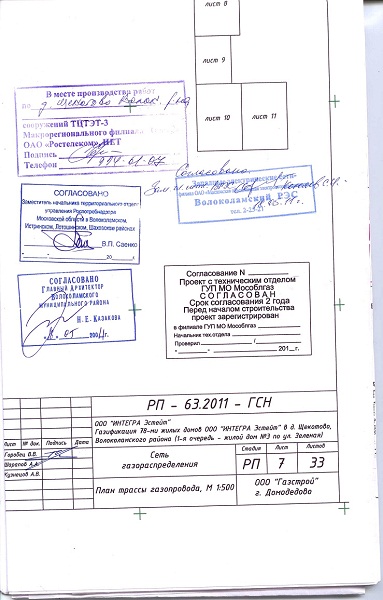 лист 8
лист 9
лист 10
лист 11
В месте производства работ
по д. Щекотово
сооружений ТЦТЭТ-3
Макрорегионального филиала
ОАО «Ростелеком» НЕТ
Подпись
Телефон
Согласовано
Западные электрические сети
Волоколамский РЭС
тел. 2-23-21
СОГЛАСОВАНО
Заместитель начальника территориального отдела
управления Роспотребнадзора
Московской области в Волоколамском,
Истринском, Лотошинском, Шаховском районах
В.П. Саенко
20 г.
СОГЛАСОВАНО
Главный Архитектор
Волоколамского
муниципального района
Н.Е. Казакова
Согласование N
Проект с техническим отделом
ГУП МО Мособлгаз
СОГЛАСОВАН
Срок согласования 2 года
Перед началом строительства
проект зарегистрирован
в филиале ГУП МО Мособлгаз
Начальник тех.отдела
Проверил /
" " 201 г.
РП - 63.2011 - ГСН
ООО "ИНТЕГРА Эстейт"
Газификация 78-ми жилых домов ООО "ИНТЕГРА Эстейт" в д. Щекотово,
Волоколамского района (1-я очередь - жилой дом №3 по ул. Зеленая)
Лист № док. Подпись Дата
Городец В.В.
Шарапов А.А.
Кузнецов А.В.
Сеть
газораспределения
Стадия Лист Листов
РП 7 33
План трассы газопровода, М 1:500
ООО "Газстрой"
г. Домодедово